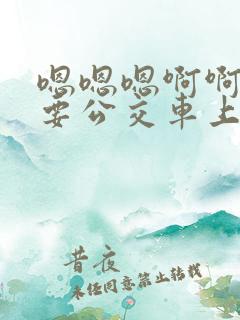 嗯嗯嗯啊啊
要公交車上
昔夜
未经同意禁止转载